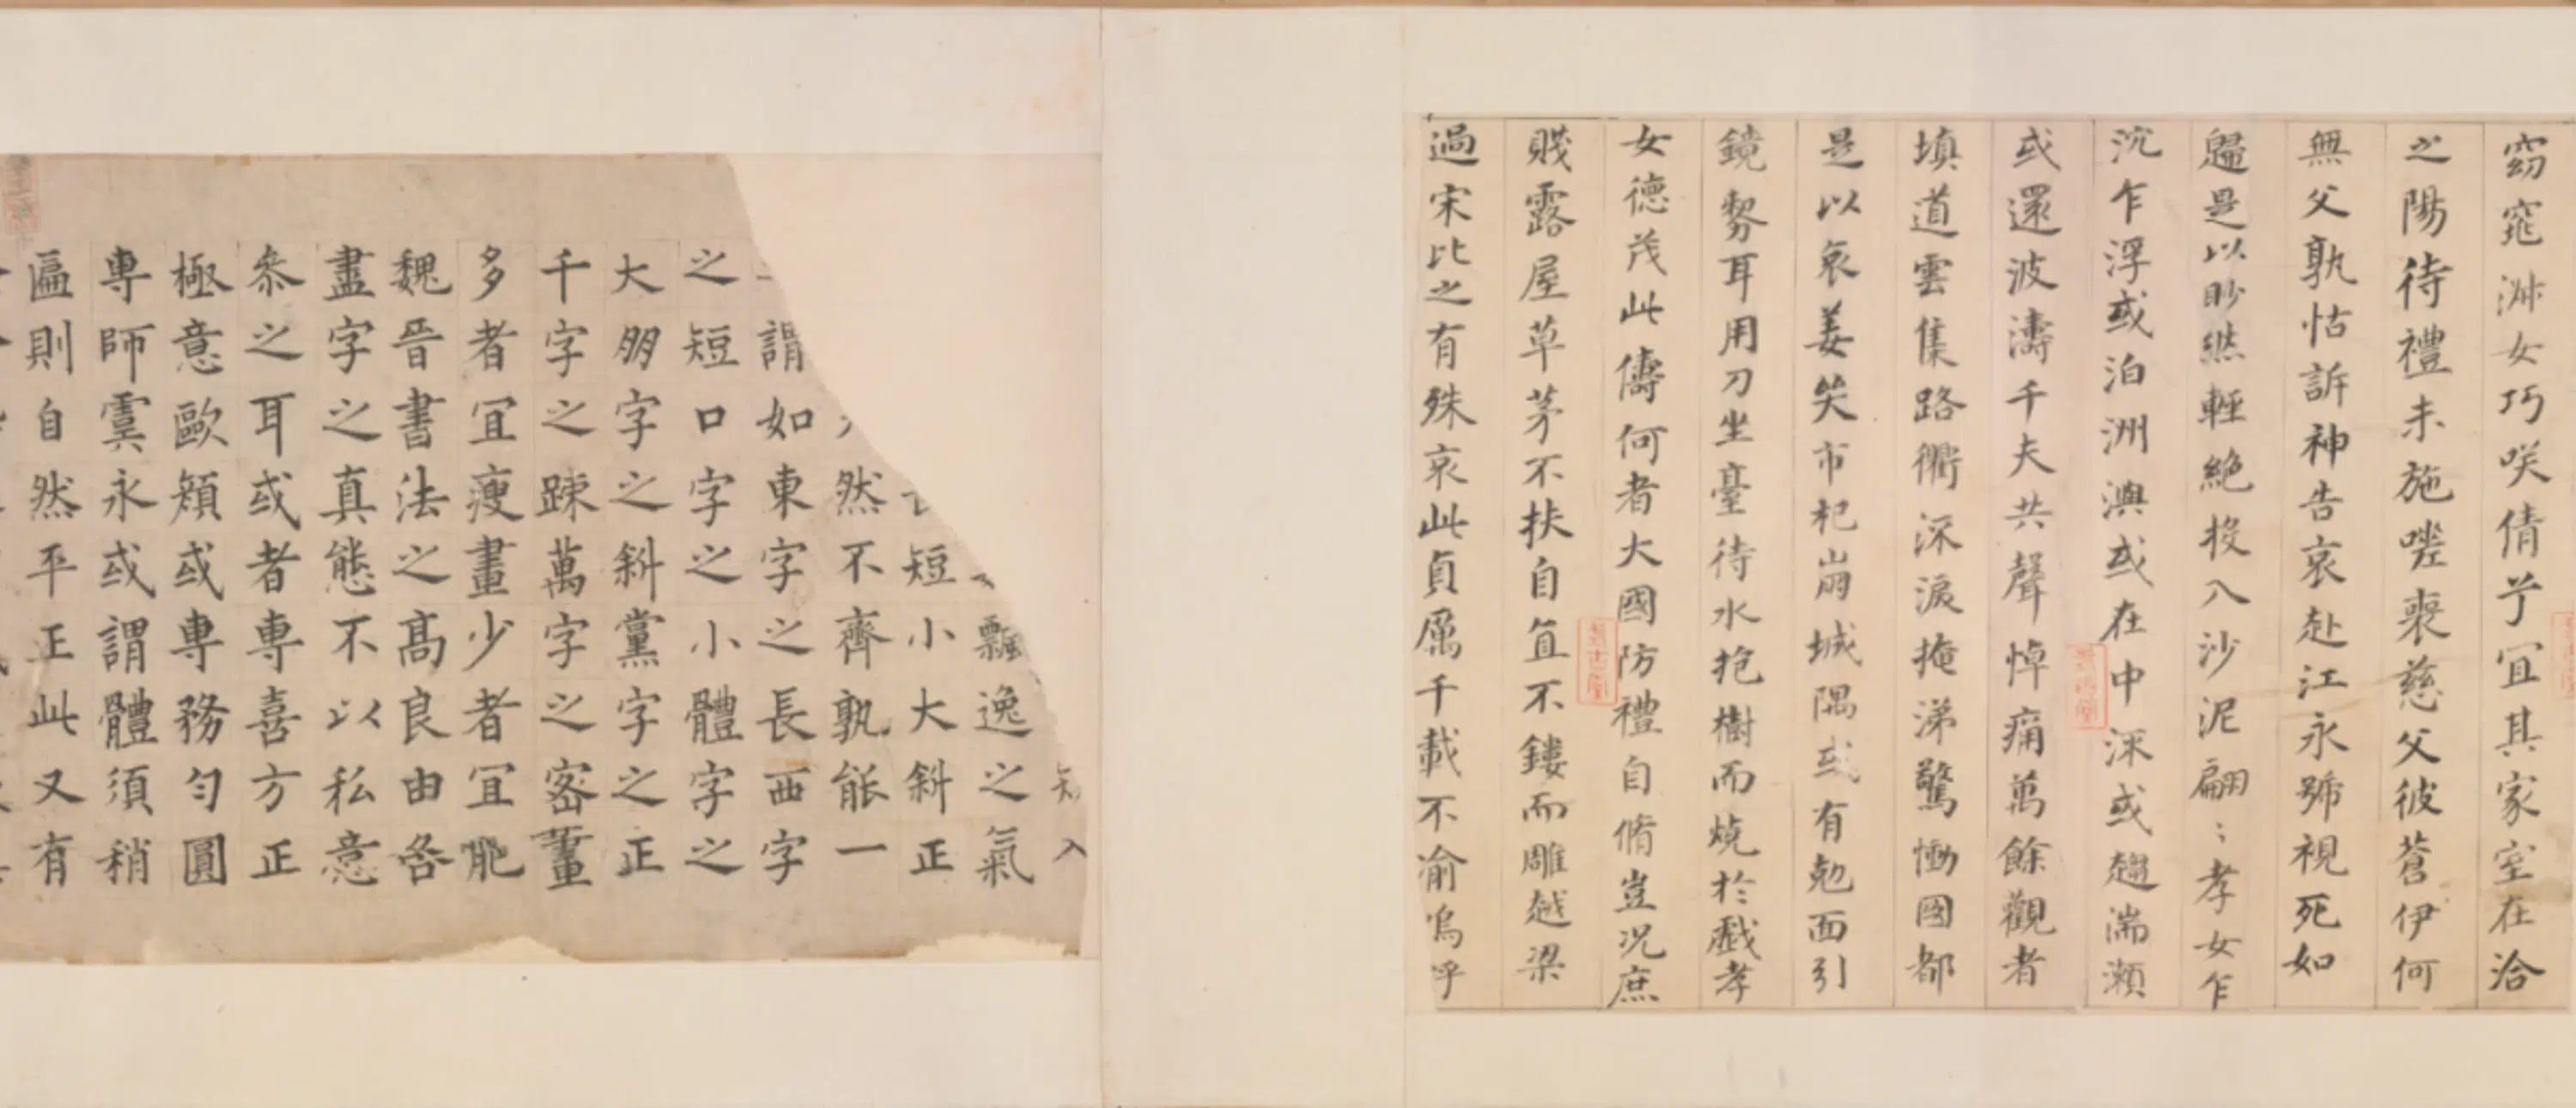 窈窕淑女巧咲倩兮宜其家室在洽
之陽待禮未施嗟喪慈父彼蒼伊何
無父孰怙訴神告哀赴江永號視死如
歸是以眇然輕絕投入沙泥翩〻孝女乍
沉乍浮或泊洲澳或在中深或趨湍瀨
或還波濤千夫共聲悼痛萬餘觀者
填道雲集路衢深淚掩涕驚慟國都
是以哀姜哭市杞崩城隅或有勉面引
鏡剺耳用刀坐臺待水抱樹而燒於戲孝
女德茂此儔何者大國防禮自脩豈況庶
賤露屋草茅不扶自直不鏤而雕越梁
過宋比之有殊哀此貞厲千載不渝嗚呼
入
飄逸之氣
短小大斜正
然不齊孰能一
謂如東字之長西字
之短口字之小體字之
大朋字之斜黨字之正
千字之踈萬字之密畫
多者宜瘦畫少者宜肥
魏晉書法之高良由各
盡字之真態不以私意
叅之耳或者專喜方正
極意歐顏或專務勻圓
專師虞永或謂體須稍
匾則自然平正此又有